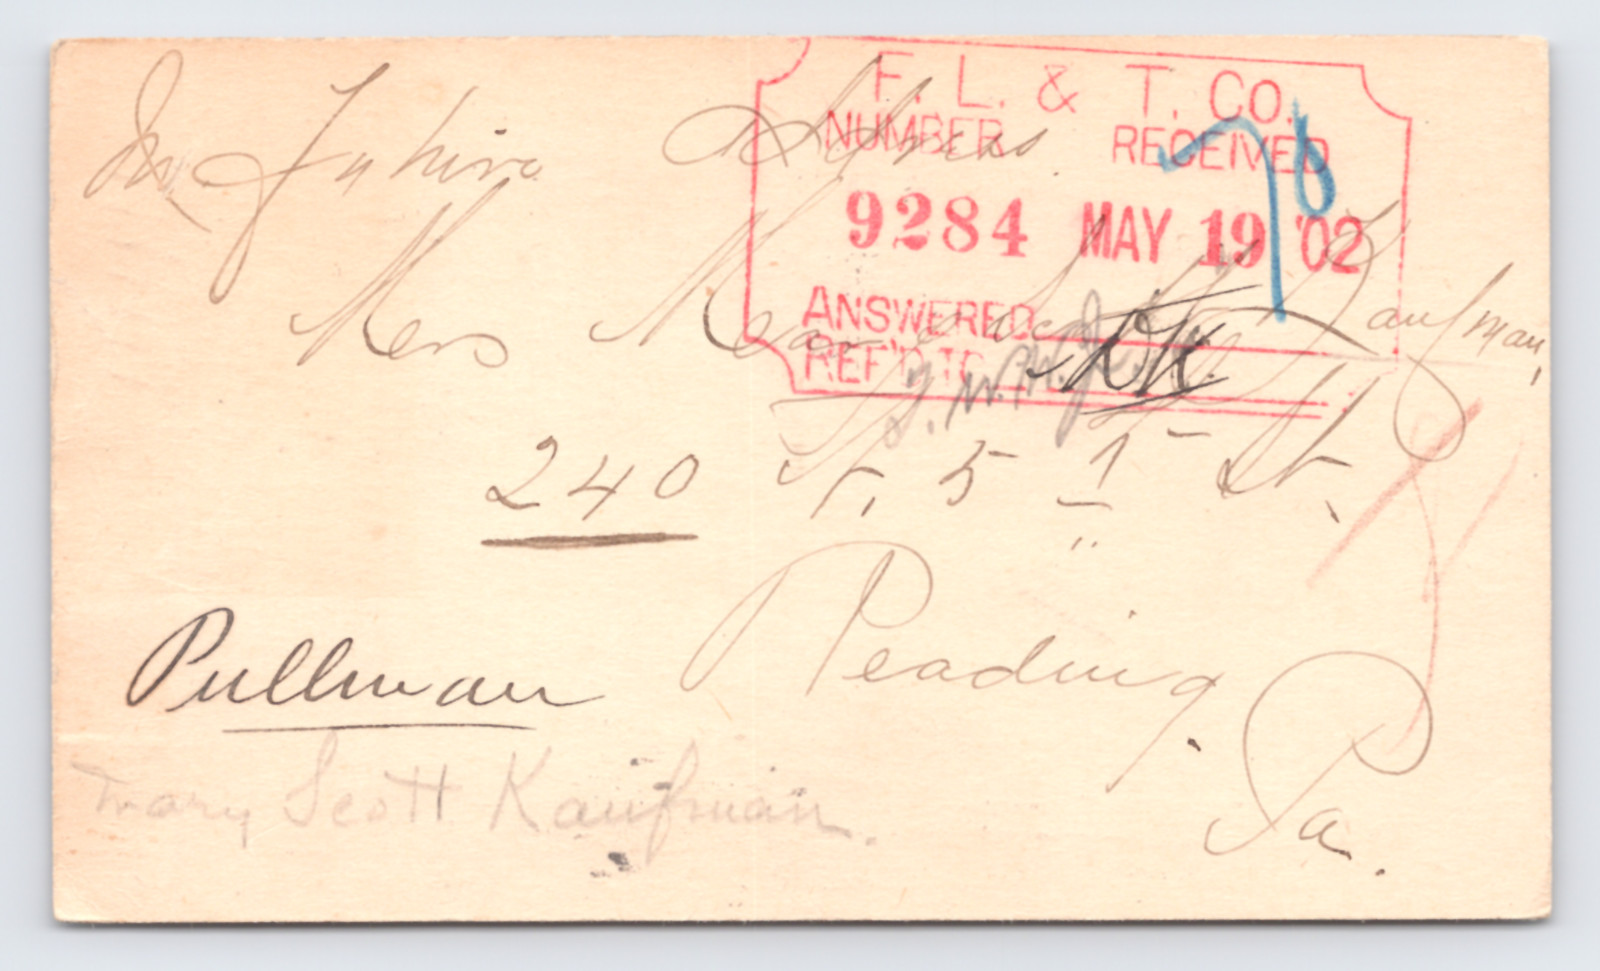 F. L. & T. Co.
NUMBER RECEIVED
9284 MAY 19 '02
ANSWERED
REF'D TO
In future address
Mrs Mary Scott Kaufman,
240 N. 5th St.
Reading,
Pa.
Pullman
Mary Scott Kaufman.